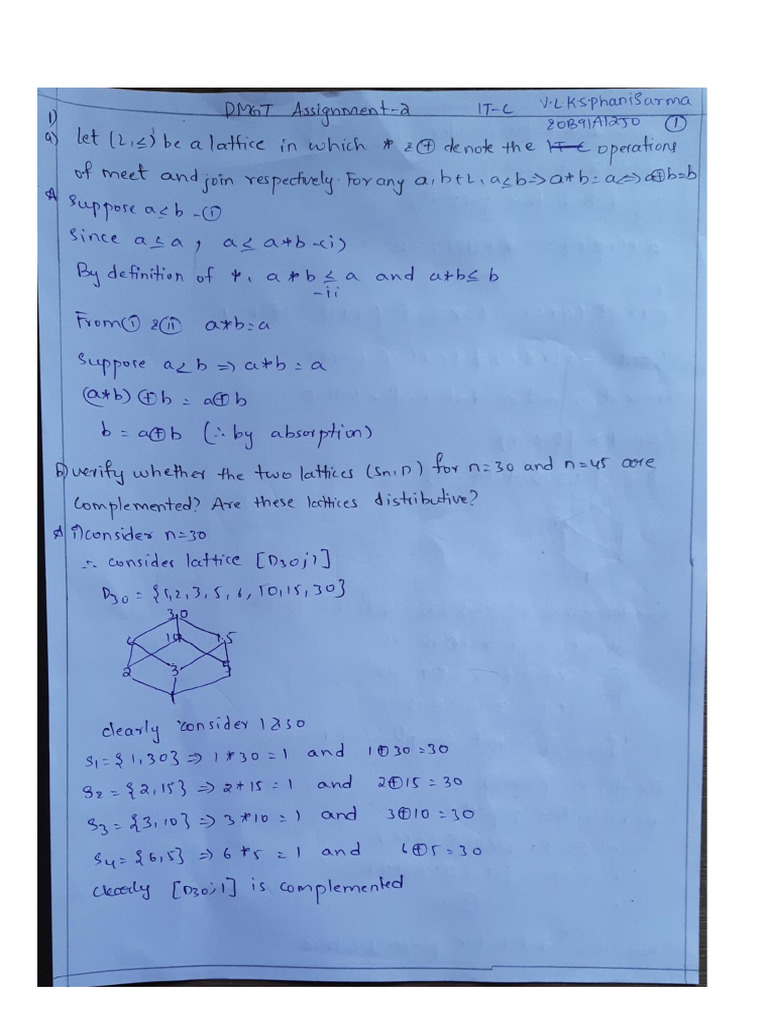 DMGT Assignment-2 IT-C V.L.K.S.phaniSarma
20B91A12J0 ①
1)
a) let (L,≤) be a lattice in which * & ⊕ denote the operations
of meet and join respectively. For any a,b∈L, a≤b⇒a*b=a⇔a⊕b=b
A Suppose a≤b -①
Since a≤a, a≤a*b -(i)
By definition of *, a*b≤a and a*b≤b
-ii
From ① & ⑪ a*b=a
Suppose a≤b ⇒ a*b=a
(a*b)⊕b = a⊕b
b = a⊕b (∴ by absorption)
b) verify whether the two lattices (Sn,D) for n=30 and n=45 are
complemented? Are these lattices distributive?
A i) consider n=30
∴ consider lattice [D30;1]
D30 = {1,2,3,5,6,10,15,30}
30
6 10 15
2 3 5
1
clearly consider 1&30
S1={1,30} ⇒ 1*30=1 and 1⊕30=30
S2={2,15} ⇒ 2*15=1 and 2⊕15=30
S3={3,10} ⇒ 3*10=1 and 3⊕10=30
S4={6,5} ⇒ 6*5=1 and 6⊕5=30
clearly [D30;1] is complemented